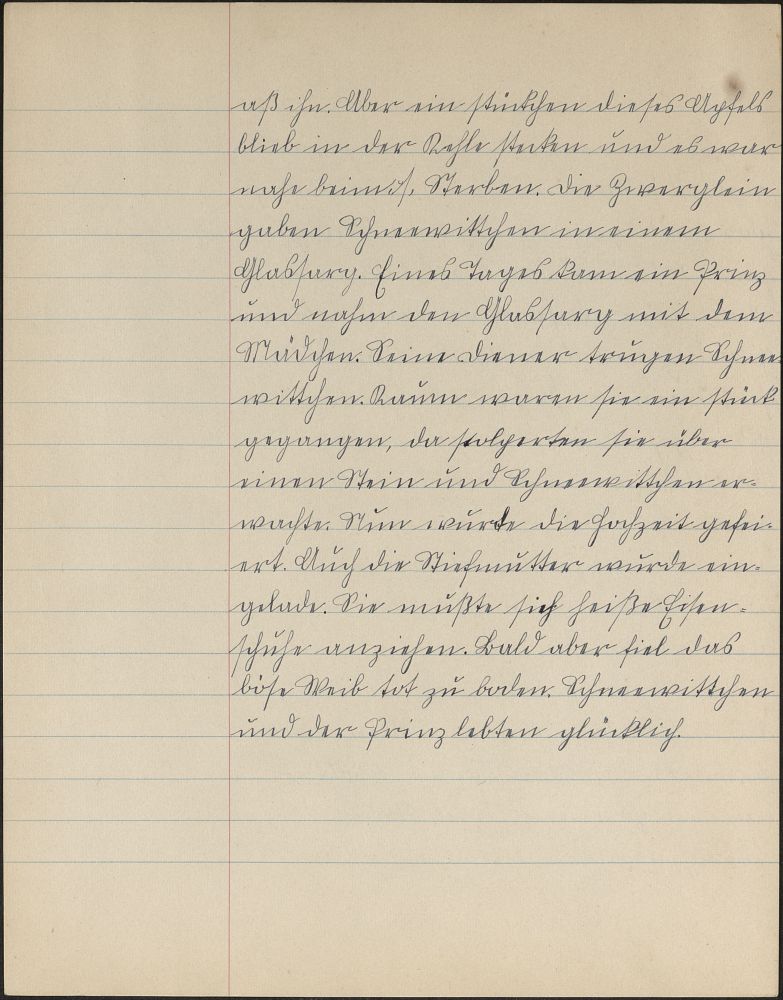 aß ihn. Aber ein stückchen dieses Apfels
blieb in der Kehle stecken und es war
nahe beim Sterben. Die Zwerglein
gaben Schneewittchen in einem
Glassarg. Eines Tages kam ein Prinz
und nahm den Glassarg mit dem
Mädchen. Seine Diener trugen Schnee-
wittchen. Kaum waren sie ein stück
gegangen, da stolperten sie über
einen Stein und Schneewittchen er-
wachte. Nun wurde die Hochzeit gefei-
ert. Auch die Stiefmutter wurde ein-
gelade. Sie mußte sich heiße Eisen-
schuhe anziehen. Bald aber fiel das
böse Weib tot zu boden. Schneewittchen
und der Prinz lebten glücklich.